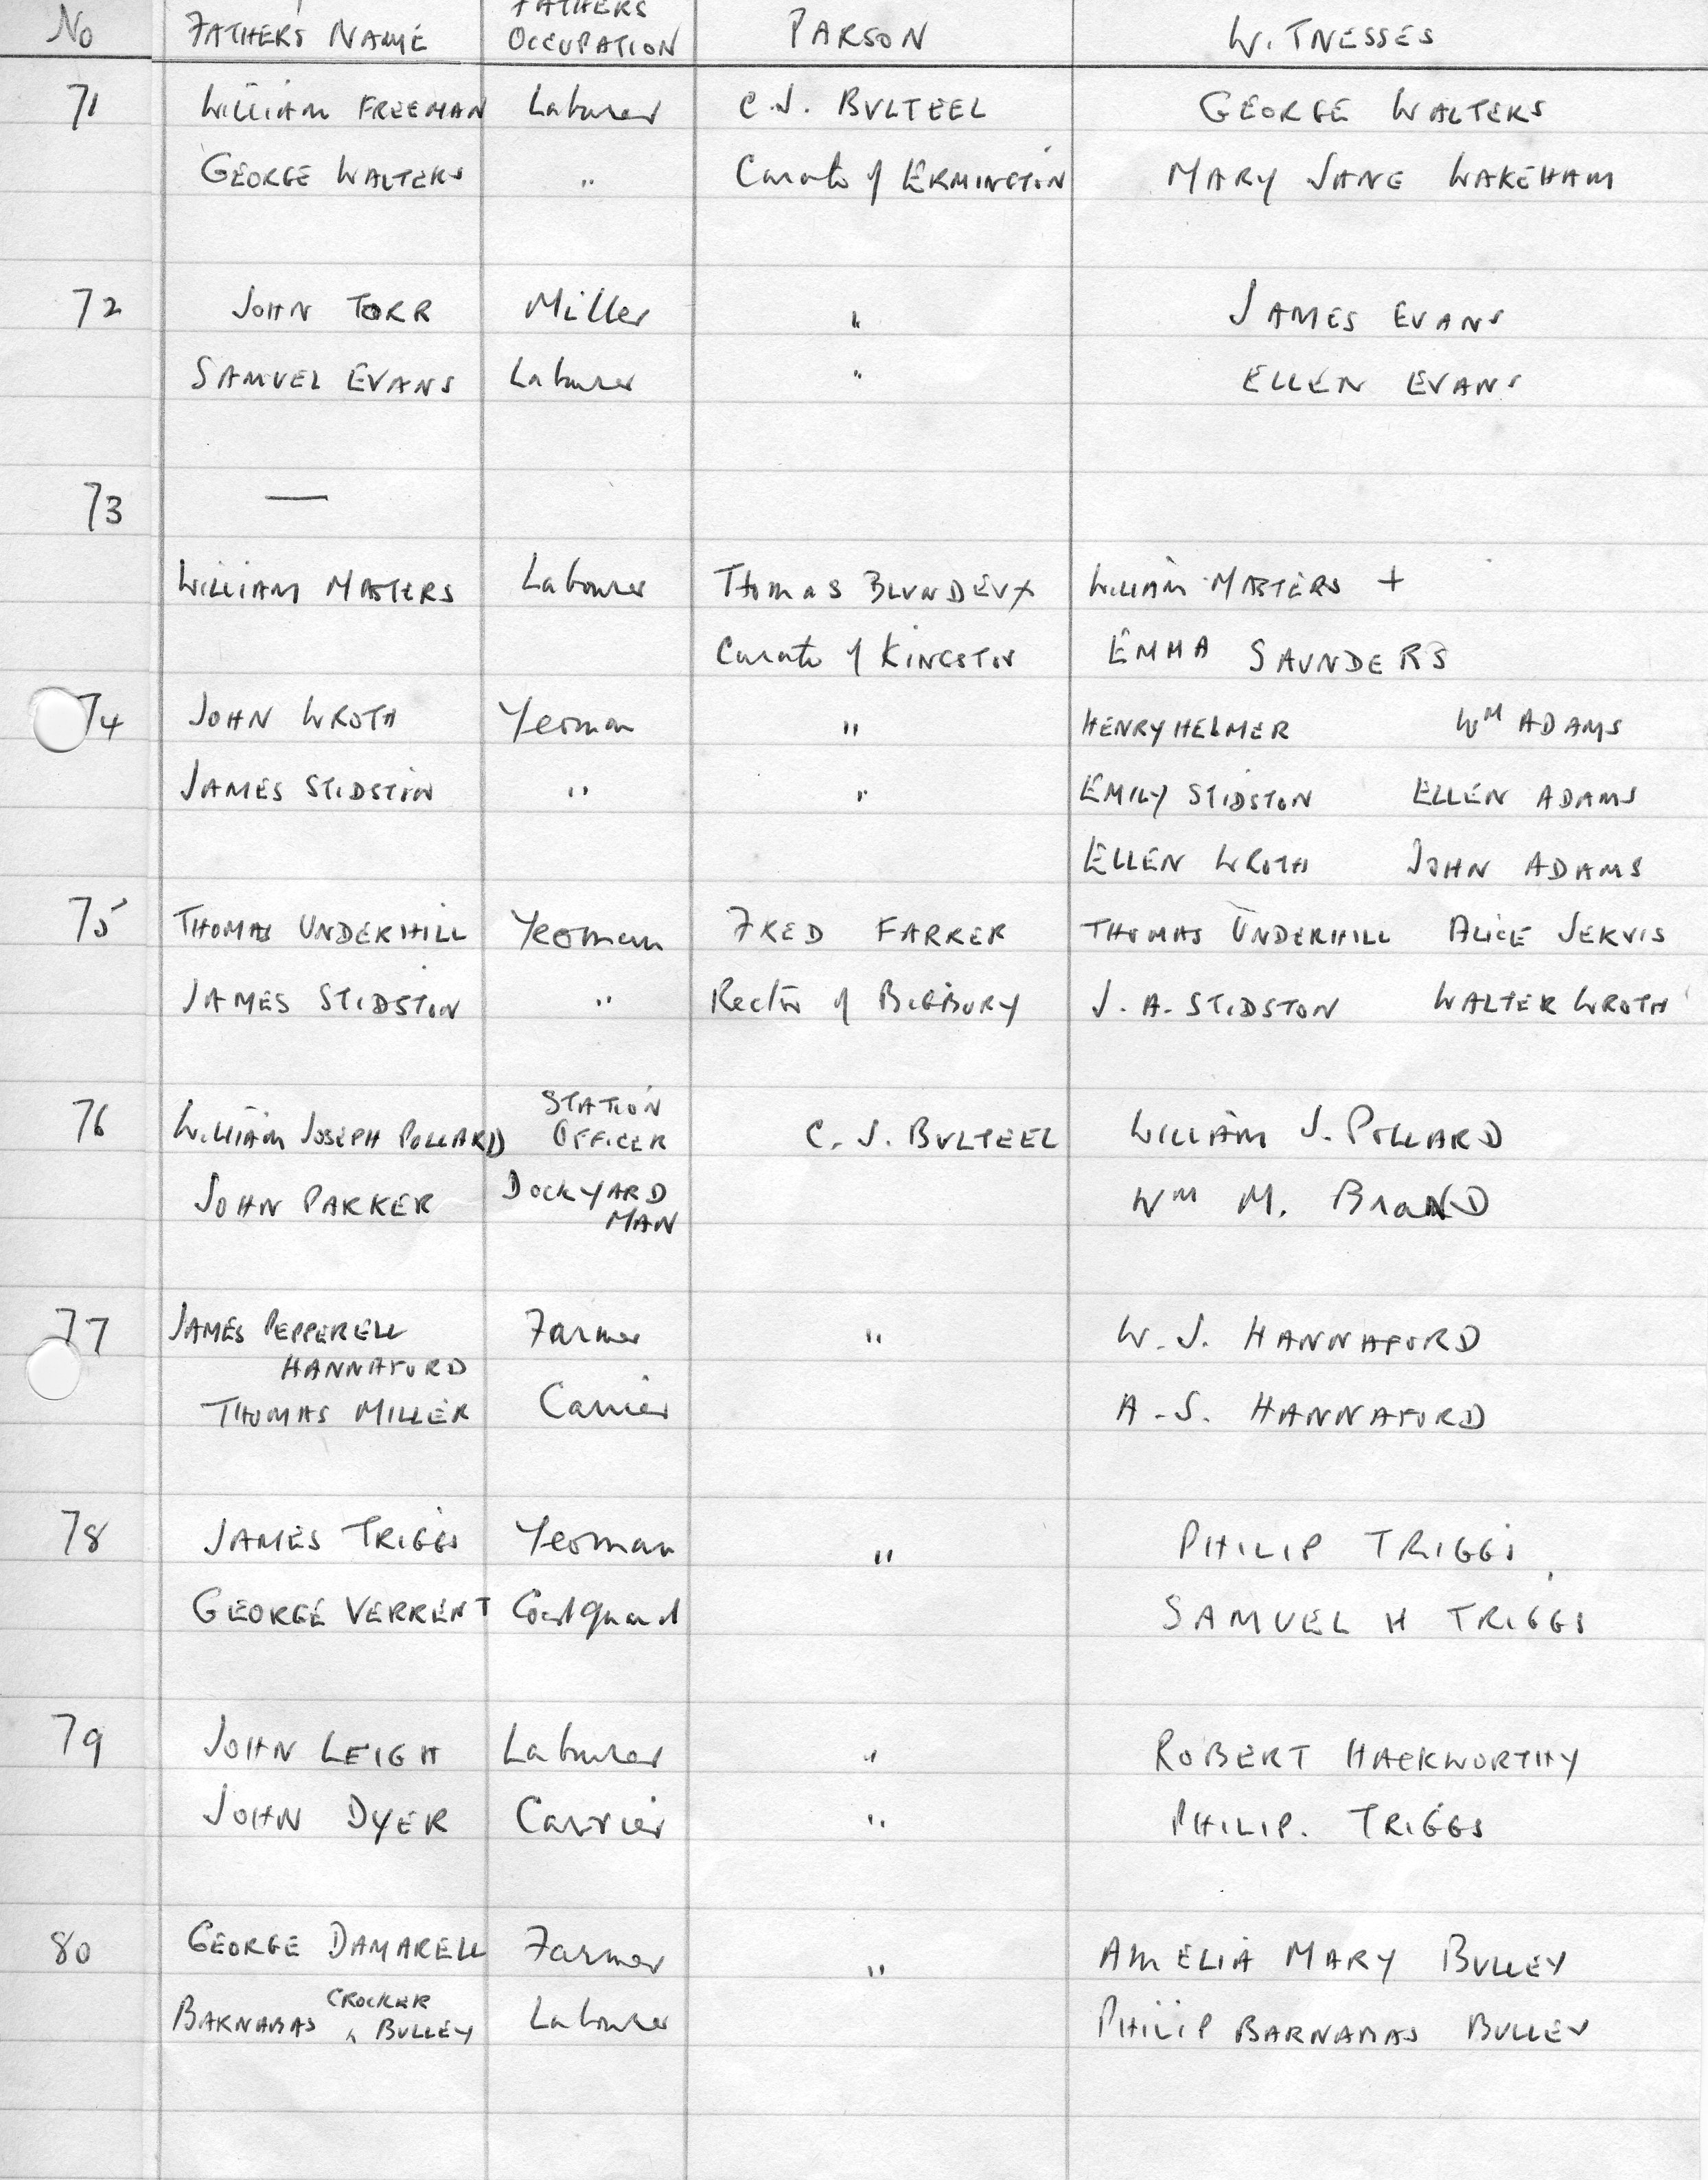 No FATHERS NAME FATHERS OCCUPATION PARSON WITNESSES
71 WILLIAM FREEMAN Labourer C.J. BULTEEL GEORGE WALTERS
GEORGE WALTERS " Curate of ERMINGTON MARY JANE WAKEHAM
72 JOHN TORR Miller " JAMES EVANS
SAMUEL EVANS Labourer " ELLEN EVANS
73 —
WILLIAM MASTERS Labourer Thomas WILLIAM MASTERS +
Curate of KINGSTON EMMA SAUNDERS
74 JOHN WROTH Yeoman " HENRY HELMER Wm ADAMS
JAMES STIDSTON " " EMILY STIDSTON ELLEN ADAMS
ELLEN WROTH JOHN ADAMS
75 THOMAS UNDERHILL Yeoman FRED FARRER THOMAS UNDERHILL ALICE JERVIS
JAMES STIDSTON " Rector of BIGBURY J. A. STIDSTON WALTER WROTH
76 WILLIAM JOSEPH POLLARD STATION OFFICER C. J. BULTEEL WILLIAM J. POLLARD
JOHN PARKER DOCKYARD MAN Wm M. BRAND
77 JAMES PEPPERELL Farmer " W. J. HANNAFORD
HANNAFORD
THOMAS MILLER Carrier A. S. HANNAFORD
78 JAMES TRIGGS Yeoman " PHILIP TRIGGS
GEORGE VERRENT Coastguard SAMUEL H TRIGGS
79 JOHN LEIGH Labourer " ROBERT HACKWORTHY
JOHN DYER Carrier " PHILIP. TRIGGS
80 GEORGE DAMARELL Farmer " AMELIA MARY BULLEY
BARNABAS CROCKER BULLEY Labourer PHILIP BARNABAS BULLEY